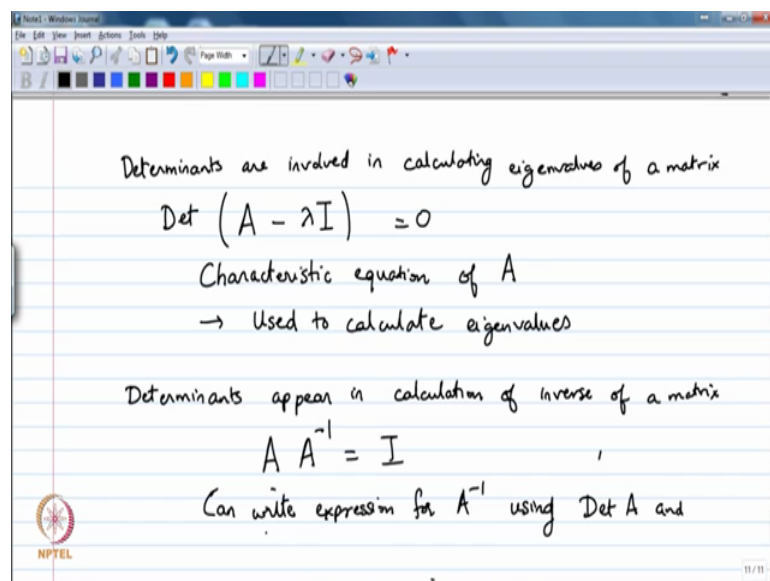 Note1 - Windows Journal
File Edit View Insert Actions Tools Help
Page Width
B I
Determinants are involved in calculating eigenvalues of a matrix
Det (A - λI) = 0
Characteristic equation of A
→ Used to calculate eigenvalues
Determinants appear in calculation of inverse of a matrix
A A⁻¹ = I
Can write expression for A⁻¹ using Det A and
NPTEL
11 / 11